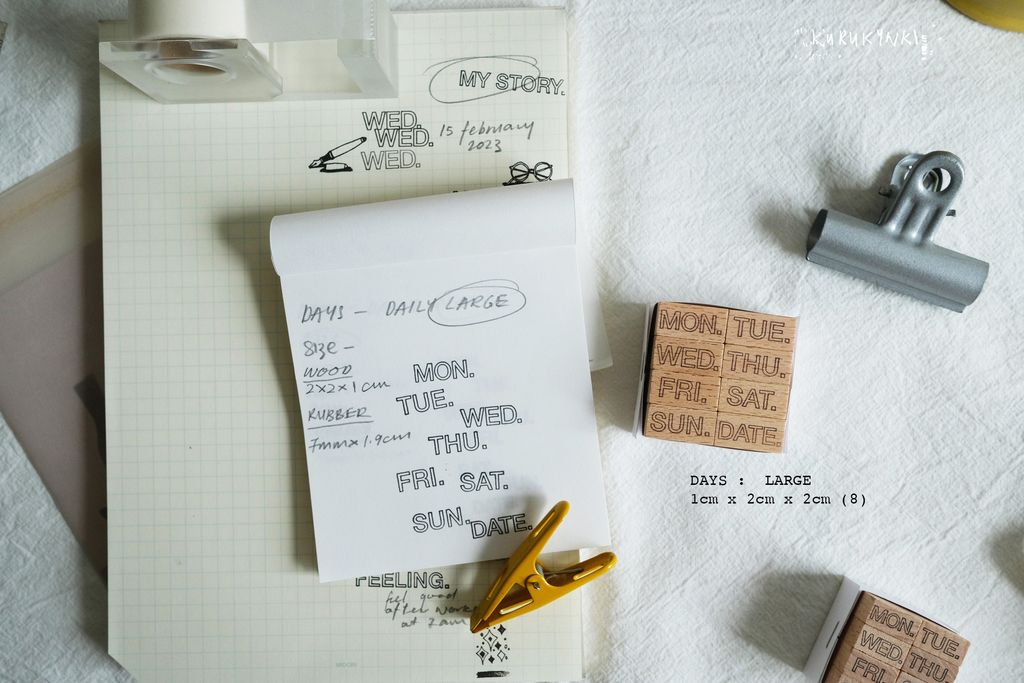 KURUKYNKI
MY STORY.
WED.
WED.
WED.
15 february
2023
DAYS – DAILY LARGE
SIZE –
WOOD
2x2x1cm
RUBBER
7mmx1.9cm
MON.
TUE.
WED.
THU.
FRI. SAT.
SUN. DATE.
FEELING.
feel good
after work
at 2am
MIDORI
MON. TUE.
WED. THU.
FRI. SAT.
SUN. DATE.
DAYS : LARGE
1cm x 2cm x 2cm (8)
MON. TUE.
WED. THU.
FRI.